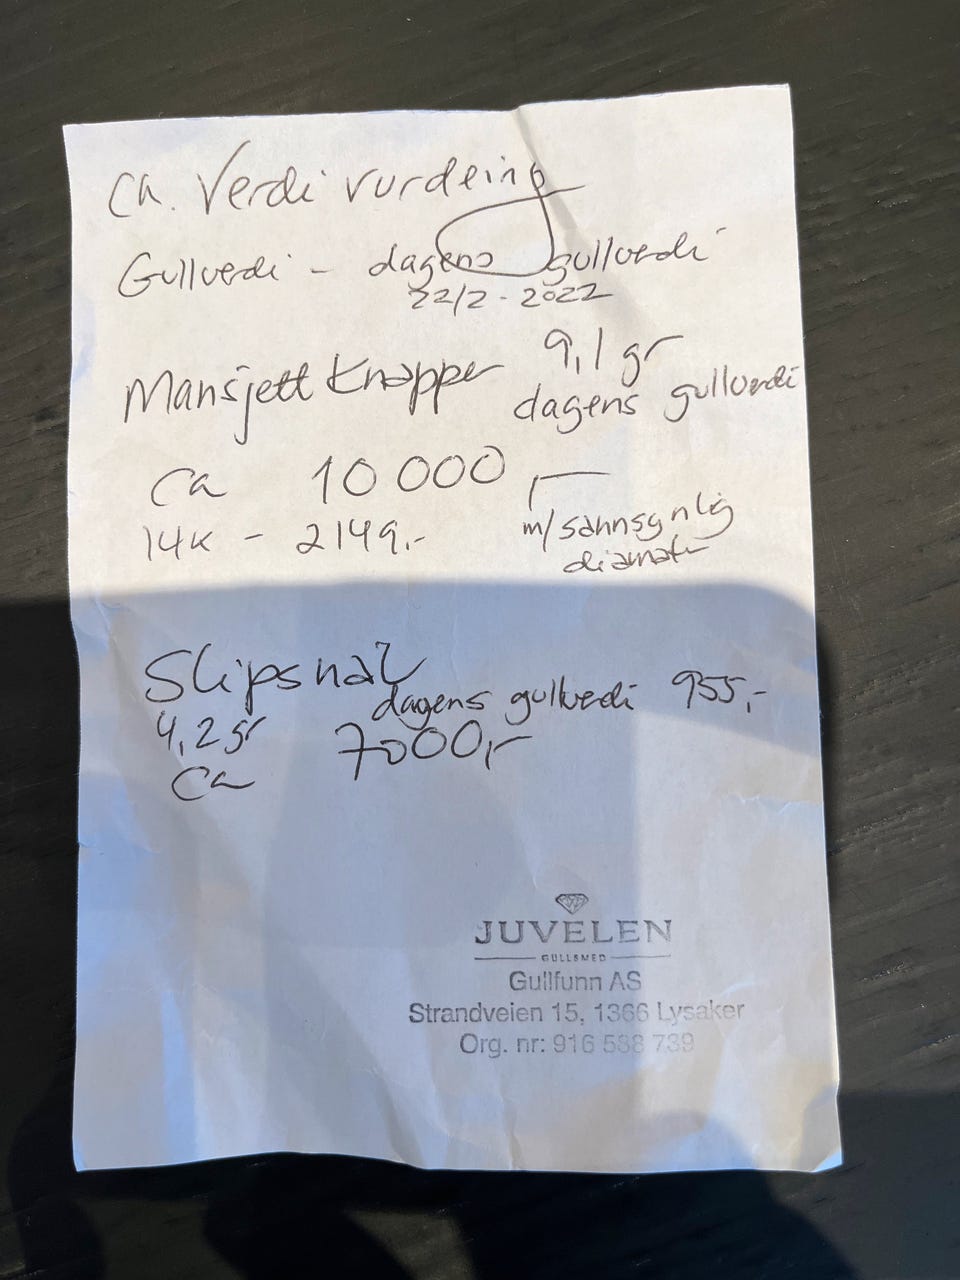 Ca. Verdi vurdeing
Gullverdi - dagens gullverdi
22/2 - 2022
Mansjett knapper 9,1 gr
dagens gullverdi
Ca 10 000,-
14K - 2149,- m/sannsynlig
diamatr
Slipsnål
dagens gullverdi 955,-
4,2 gr
Ca 7000,-
JUVELEN
GULLSMED
Gullfunn AS
Strandveien 15, 1366 Lysaker
Org. nr: 916 588 739